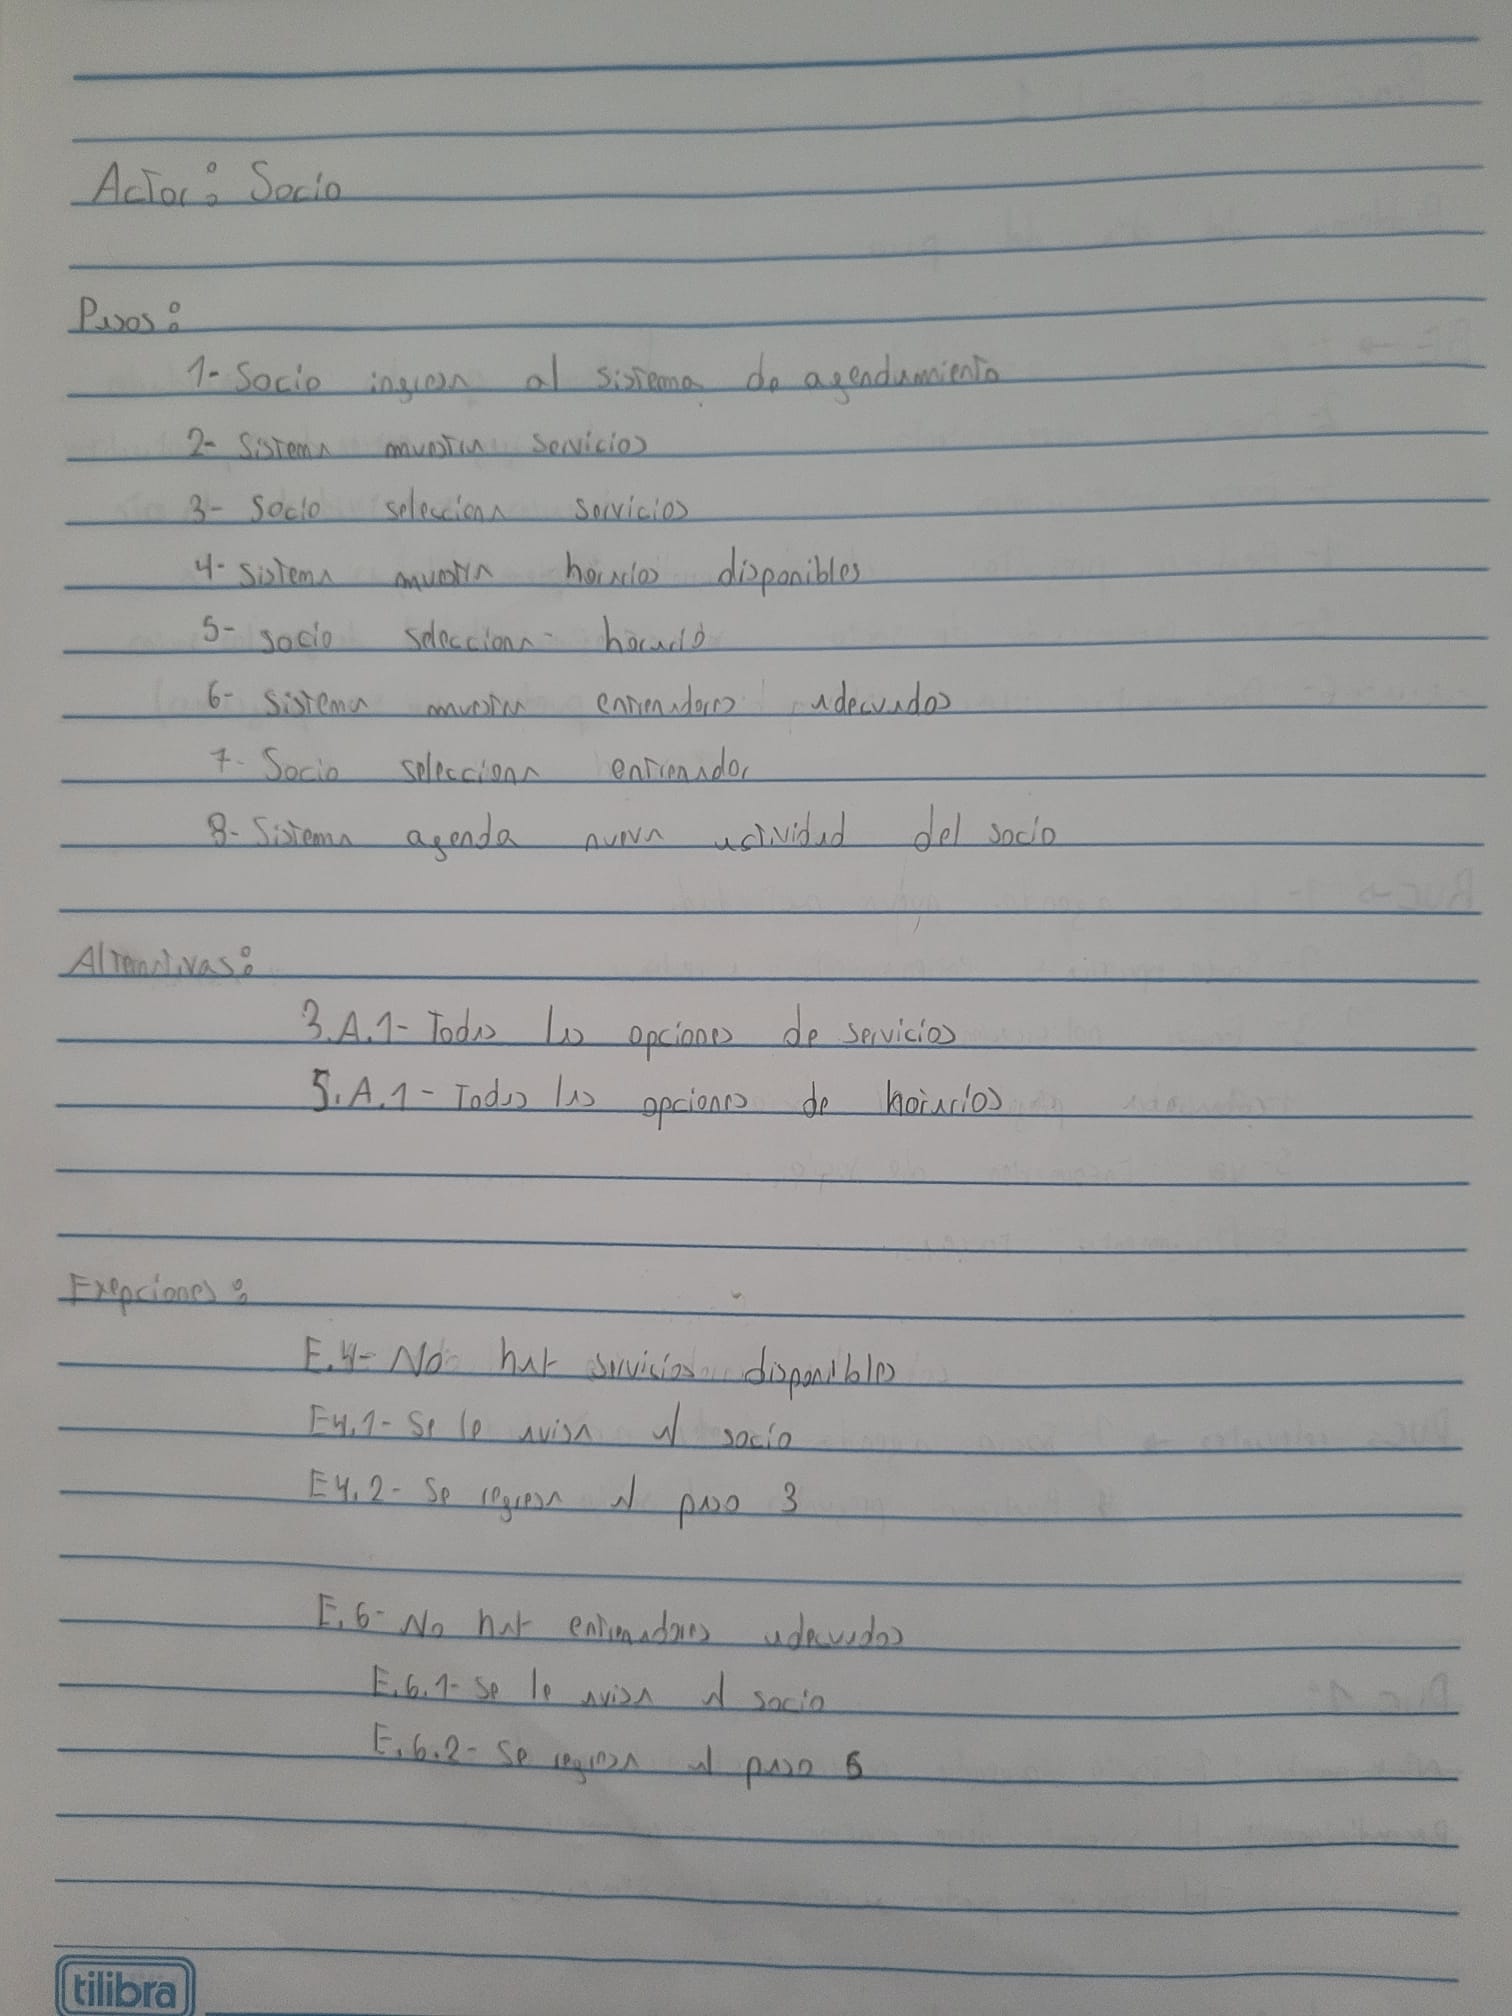 Actor: Socio
Pasos:
1- Socio ingresa al sistema de agendamiento
2- Sistema muestra servicios
3- Socio selecciona servicios
4- Sistema muestra horarios disponibles
5- socio selecciona horario
6- Sistema muestra entrenadores adecuados
7- Socio selecciona entrenador
8- Sistema agenda nueva actividad del socio
Alternativas:
3.A.1- Todas las opciones de servicios
5.A.1- Todas las opciones de horarios
Exepciones:
E.4- No hay servicios disponibles
E4.1- Se le avisa al socio
E4.2- Se regresa al paso 3
E.6- No hay entrenadores adecuados
E.6.1- Se le avisa al socio
E.6.2- Se regresa al paso 5
tilibra